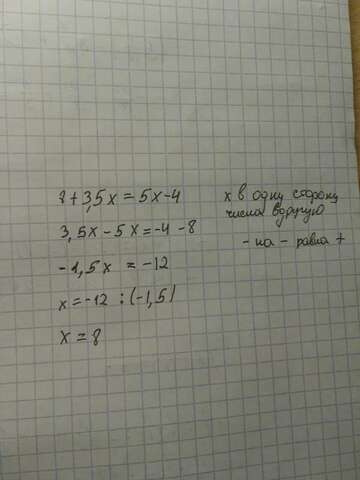 8+3,5x=5x-4
3,5x-5x=-4-8
-1,5x=-12
x=-12:(-1,5)
x=8
x в одну сторону
числа в другую
- на - равна +